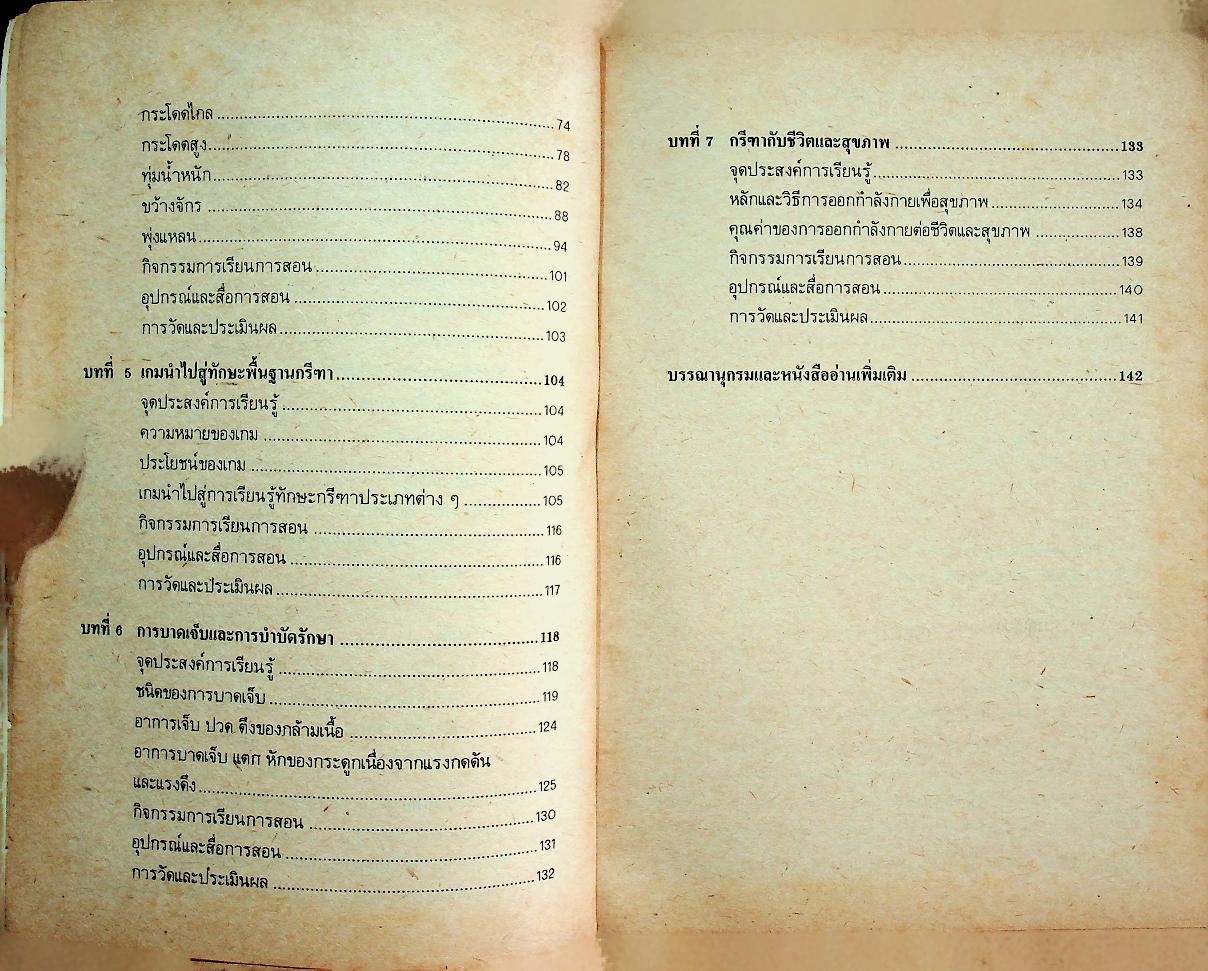 กระโดดไกล ........................................ 74
กระโดดสูง ........................................ 78
ทุ่มน้ำหนัก ........................................ 82
ขว้างจักร ........................................ 88
พุ่งแหลน ........................................ 94
กิจกรรมการเรียนการสอน ........................................ 101
อุปกรณ์และสื่อการสอน ........................................ 102
การวัดและประเมินผล ........................................ 103
บทที่ 5 เกมนำไปสู่ทักษะพื้นฐานกรีฑา ........................................ 104
จุดประสงค์การเรียนรู้ ........................................ 104
ความหมายของเกม ........................................ 104
ประโยชน์ของเกม ........................................ 105
เกมนำไปสู่การเรียนรู้ทักษะกรีฑาประเภทต่าง ๆ ........................................ 105
กิจกรรมการเรียนการสอน ........................................ 116
อุปกรณ์และสื่อการสอน ........................................ 116
การวัดและประเมินผล ........................................ 117
บทที่ 6 การบาดเจ็บและการบำบัดรักษา ........................................ 118
จุดประสงค์การเรียนรู้ ........................................ 118
ชนิดของการบาดเจ็บ ........................................ 119
อาการเจ็บ ปวด ตึงของกล้ามเนื้อ ........................................ 124
อาการบาดเจ็บ แตก หักของกระดูกเนื่องจากแรงกดดัน
และแรงดึง ........................................ 125
กิจกรรมการเรียนการสอน ........................................ 130
อุปกรณ์และสื่อการสอน ........................................ 131
การวัดและประเมินผล ........................................ 132
บทที่ 7 กรีฑากับชีวิตและสุขภาพ ........................................ 133
จุดประสงค์การเรียนรู้ ........................................ 133
หลักและวิธีการออกกำลังกายเพื่อสุขภาพ ........................................ 134
คุณค่าของการออกกำลังกายต่อชีวิตและสุขภาพ ........................................ 138
กิจกรรมการเรียนการสอน ........................................ 139
อุปกรณ์และสื่อการสอน ........................................ 140
การวัดและประเมินผล ........................................ 141
บรรณานุกรมและหนังสืออ่านเพิ่มเติม ........................................ 142